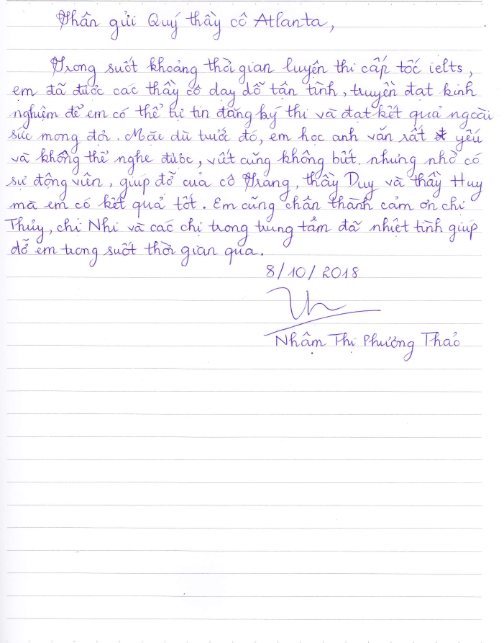 Thân gửi Quý thầy cô Atlanta,
Trong suốt khoảng thời gian luyện thi cấp tốc ielts,
em đã được các thầy cô dạy dỗ tận tình, truyền đạt kinh
nghiệm để em có thể tự tin đăng ký thi và đạt kết quả ngoài
sức mong đợi. Mặc dù trước đó, em học anh văn rất yếu
và không thể nghe được, viết cũng không biết. nhưng nhờ có
sự động viên, giúp đỡ của cô Trang, thầy Duy và thầy Huy
mà em có kết quả tốt. Em cũng chân thành cảm ơn chị
Thủy, chị Nhi và các chị trong trung tâm đã nhiệt tình giúp
đỡ em trong suốt thời gian qua.
8/10/2018
Nhâm Thị Phương Thảo